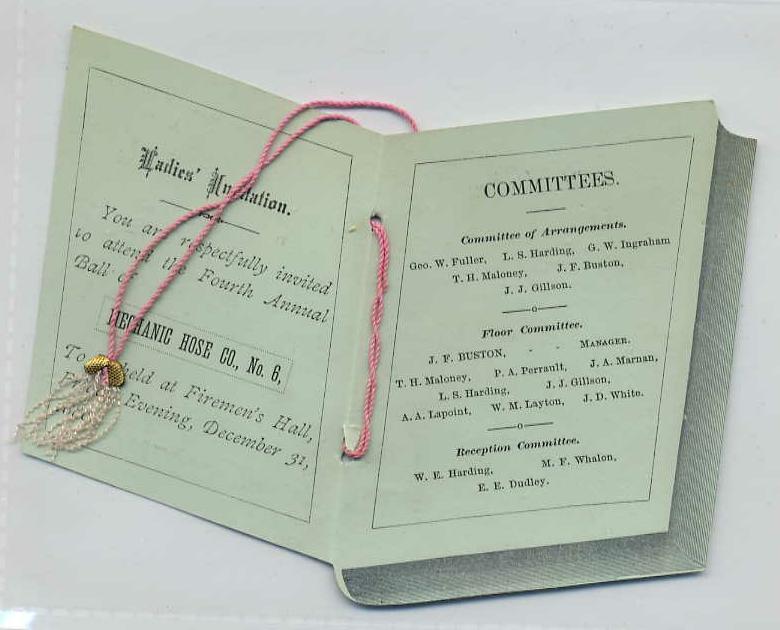 Ladies' Invitation.
You are respectfully invited
to attend the Fourth Annual
Ball
MECHANIC HOSE CO., No. 6,
To held at Firemen's Hall,
Evening, December 31,
COMMITTEES.
Committee of Arrangements.
Geo. W. Fuller, L. S. Harding, G. W. Ingraham
T. H. Maloney, J. F. Buston,
J. J. Gillson.
Floor Committee.
J. F. BUSTON, - - MANAGER.
T. H. Maloney, P. A. Perrault, J. A. Marnan,
L. S. Harding, J. J. Gillson,
A. A. Lapoint, W. M. Layton, J. D. White.
Reception Committee.
W. E. Harding, M. F. Whalon,
E. E. Dudley.